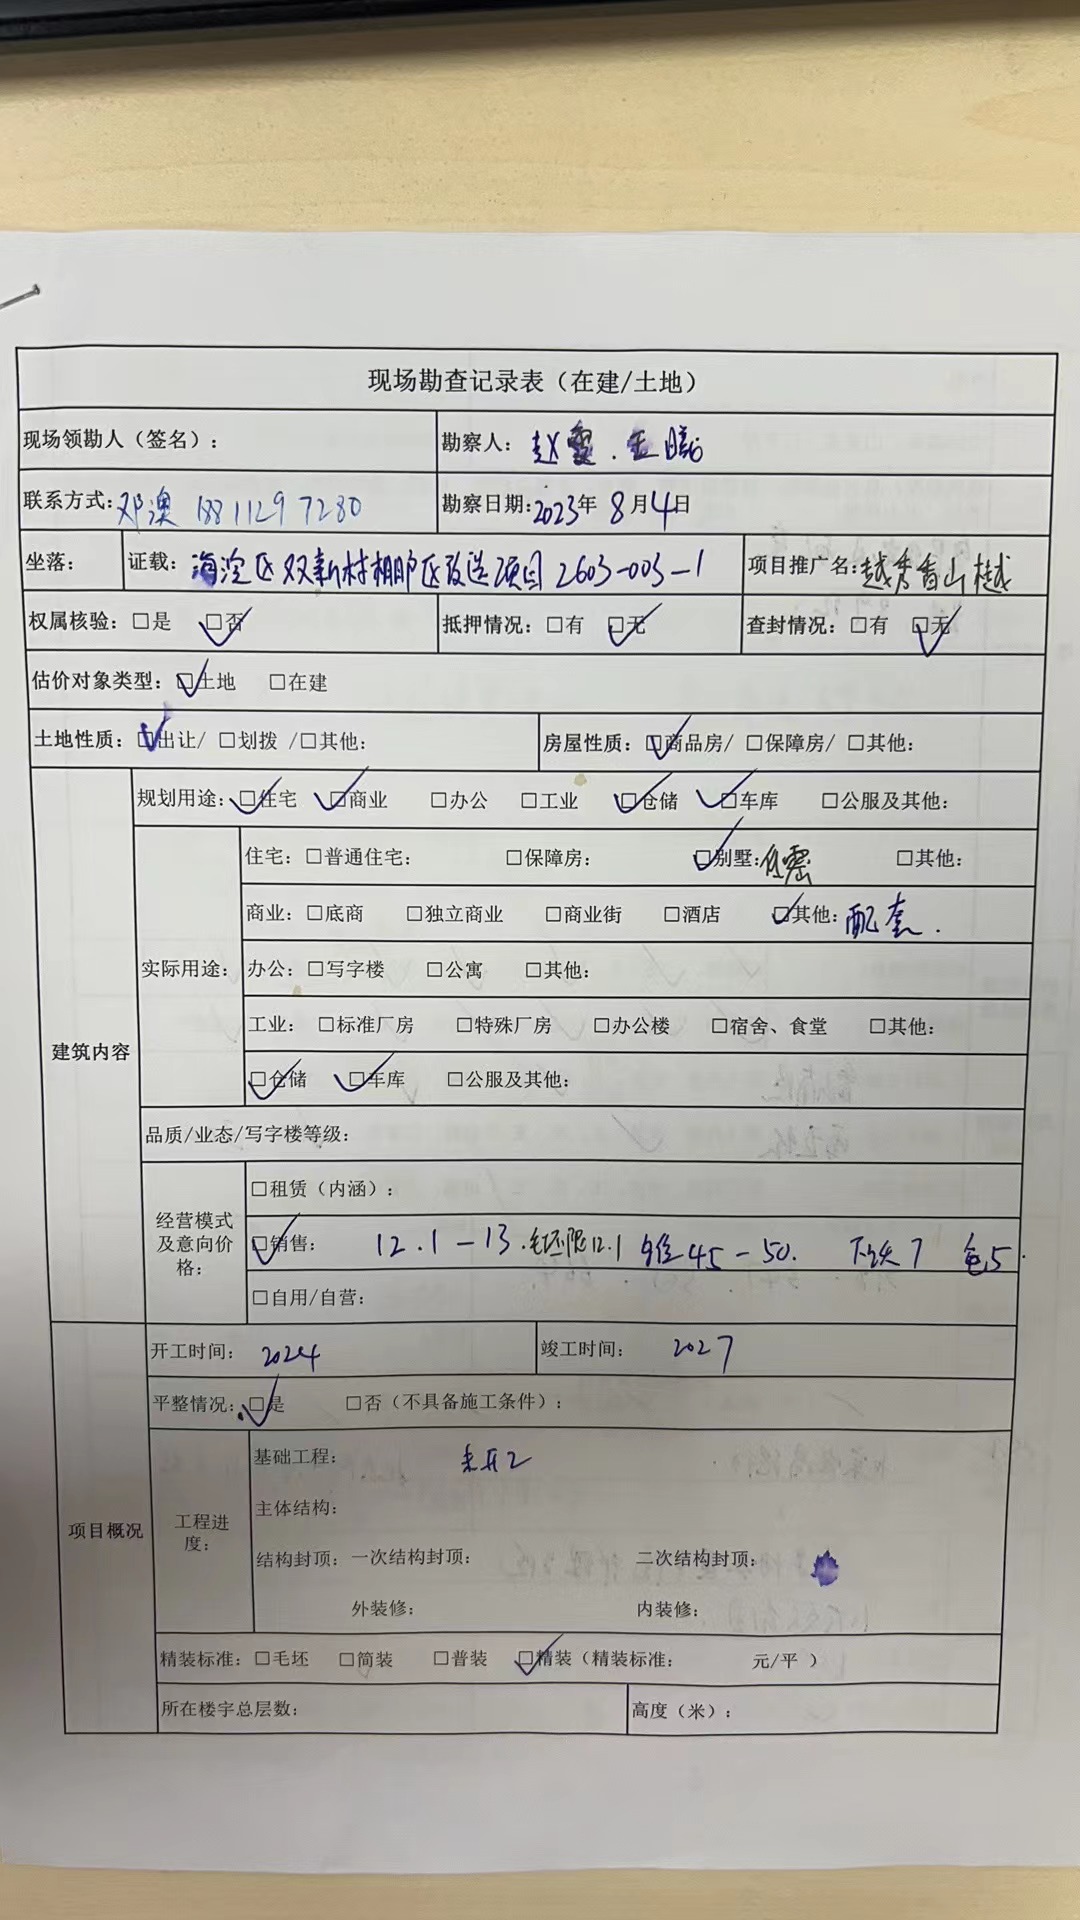 现场勘查记录表（在建/土地）
现场领勘人（签名）： 勘察人： 赵雯. 王曦
联系方式: 邓澳 18811297280 勘察日期: 2023年 8月4日
坐落： 证载： 海淀区双新村棚户区改造项目2603-003-1 项目推广名: 越秀香山樾
权属核验：□是 □否 抵押情况：□有 □无 查封情况：□有 □无
估价对象类型：□土地 □在建
土地性质：□出让/ □划拨 /□其他： 房屋性质：□商品房/ □保障房/ □其他：
建筑内容
规划用途：□住宅 □商业 □办公 □工业 □仓储 □车库 □公服及其他：
实际用途：
住宅：□普通住宅： □保障房： □别墅: 低密 □其他：
商业：□底商 □独立商业 □商业街 □酒店 □其他: 配套.
办公：□写字楼 □公寓 □其他：
工业：□标准厂房 □特殊厂房 □办公楼 □宿舍、食堂 □其他：
□仓储 □车库 □公服及其他：
品质/业态/写字楼等级：
经营模式及意向价格：
□租赁（内涵）：
□销售： 12.1-13. 毛坯限12.1 45-50. 7 5.
□自用/自营：
项目概况
开工时间： 2024 竣工时间： 2027
平整情况：□是 □否（不具备施工条件）：
工程进度：
基础工程： 未开工
主体结构：
结构封顶：一次结构封顶： 二次结构封顶：
外装修： 内装修：
精装标准：□毛坯 □简装 □普装 □精装（精装标准： 元/平 ）
所在楼宇总层数： 高度（米）：